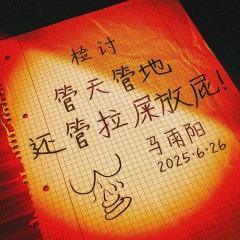 检讨
管天管地
还管拉屎放屁!
马雨阳
2025.6.26